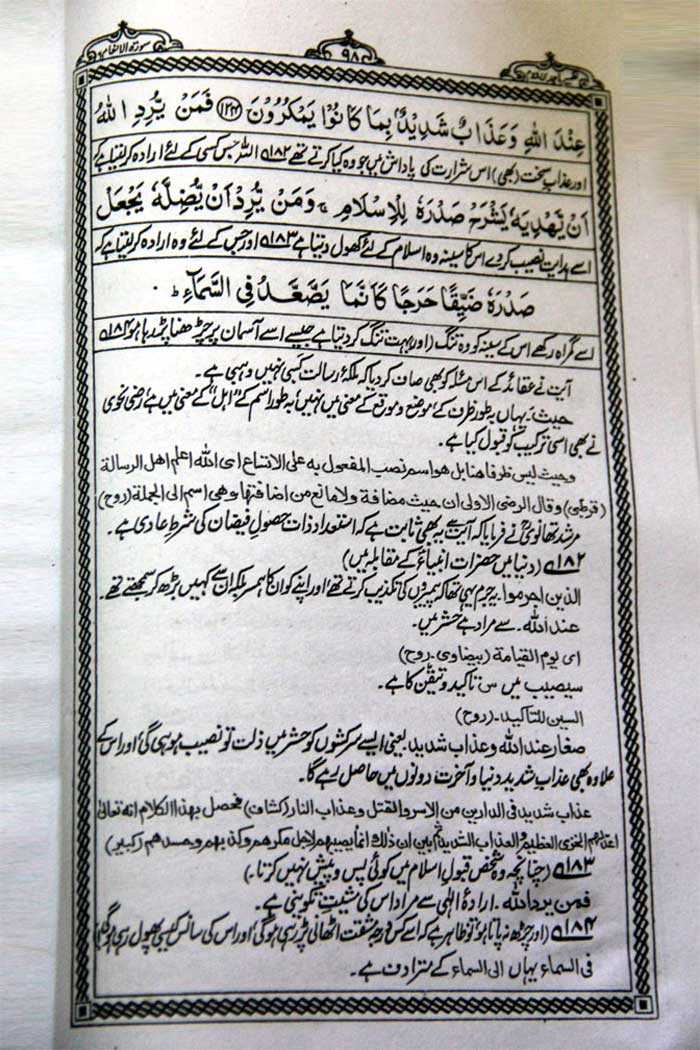 سورۃ الانعام
۹۸
تفسیر ماجدی جلد دوم
عِنْدَ اللّٰهِ وَعَذَابٌ شَدِيْدٌۢ بِمَا كَانُوْا يَمْكُرُوْنَ ﴿۱۲۴﴾ فَمَنْ يُّرِدِ اللّٰهُ
اور عذاب سخت (بھی) اس شرارت کی پاداش میں جو وہ کیا کرتے تھے ۱۸۲ اللہ جس کسی کے لئے ارادہ کرلیتا ہے کہ
اَنْ يَّهْدِيَهٗ يَشْرَحْ صَدْرَهٗ لِلْاِسْلَامِ ۚ وَمَنْ يُّرِدْ اَنْ يُّضِلَّهٗ يَجْعَلْ
اسے ہدایت نصیب کردے اس کا سینہ وہ اسلام کے لئے کھول دیتا ہے ۱۸۳ اور جس کے لئے وہ ارادہ کرلیتا ہے کہ
صَدْرَهٗ ضَيِّقًا حَرَجًا كَاَنَّمَا يَصَّعَّدُ فِی السَّمَآءِ ؕ
اسے گمراہ رکھے اس کے سینہ کو وہ تنگ (اور) بہت تنگ کردیتا ہے جیسے اسے آسمان پر چڑھنا پڑ رہا ہو ۱۸۴
آیت نے عقائد کے اس مسئلہ کو بھی صاف کردیا کہ ملکۂ رسالت کسبی نہیں وہبی ہے۔
حیث۔ یہاں بہ طور ظرف کے موضع و موقع کے معنی میں نہیں، بہ طور اسم کے "اہل" کے معنی میں ہے، رضی نحوی
نے بھی اسی ترکیب کو قبول کیا ہے۔
وحیث لیس ظرفا ھنا بل ھو اسم نصب المفعول بہ علی الاتساع ای اللہ اعلم اھل الرسالة
(قرطبی) وقال الرضی الاولی ان حیث مضافة ولا مانع من اضافتھا وھی اسم الی الجملة (روح)
مرشد تھانویؒ نے فرمایا کہ آیت سے یہ بھی ثابت ہے کہ استعداد ذات حصول فیضان کی شرط عادی ہے۔
۱۸۲ (دنیا میں حضرات انبیاءؑ کے مقابلہ میں)
الذین اجرموا۔ یہ جرم یہی تھا کہ پیمبروں کی تکذیب کرتے تھے، اور اپنے کو ان کا ہمسر بلکہ ان سے کہیں بڑھ کر سمجھتے تھے۔
عند اللہ۔ سے مراد ہے حشر میں۔
ای یوم القیامة (بیضاوی۔ روح)
سیصیب میں س تاکید و تیقن کا ہے۔
السین للتاکید۔ (روح)
صغار عند اللہ و عذاب شدید۔ یعنی ایسے سرکشوں کو حشر میں ذلت تو نصیب ہو ہی گی، اور اس کے
علاوہ بھی عذاب شدید دنیا و آخرت دونوں میں حاصل رہے گا۔
عذاب شدید فی الدارین من الاسر والقتل وعذاب النار (کشاف) فحصل بھذا الکلام انہ تعالیٰ
اعد لھم الخزی العظیم والعذاب الشدید ثم بین ان ذلک انما یصیبھم لاجل مکرھم وکذبھم وحسدھم (کبیر)
۱۸۳ (چنانچہ وہ شخص قبول اسلام میں کوئی پس و پیش نہیں کرتا۔)
فمن یرد اللہ۔ ارادۂ الٰہی سے مراد اس کی مشیت تکوینی ہے۔
۱۸۴ (اور چڑھ نہ پاتا ہو، تو ظاہر ہے کہ اسے کس درجہ مشقت اٹھانی پڑ رہی ہوگی اور اس کی سانس کیسی پھول رہی ہوگی)
فی السماء یہاں الی السماء کے مترادف ہے۔